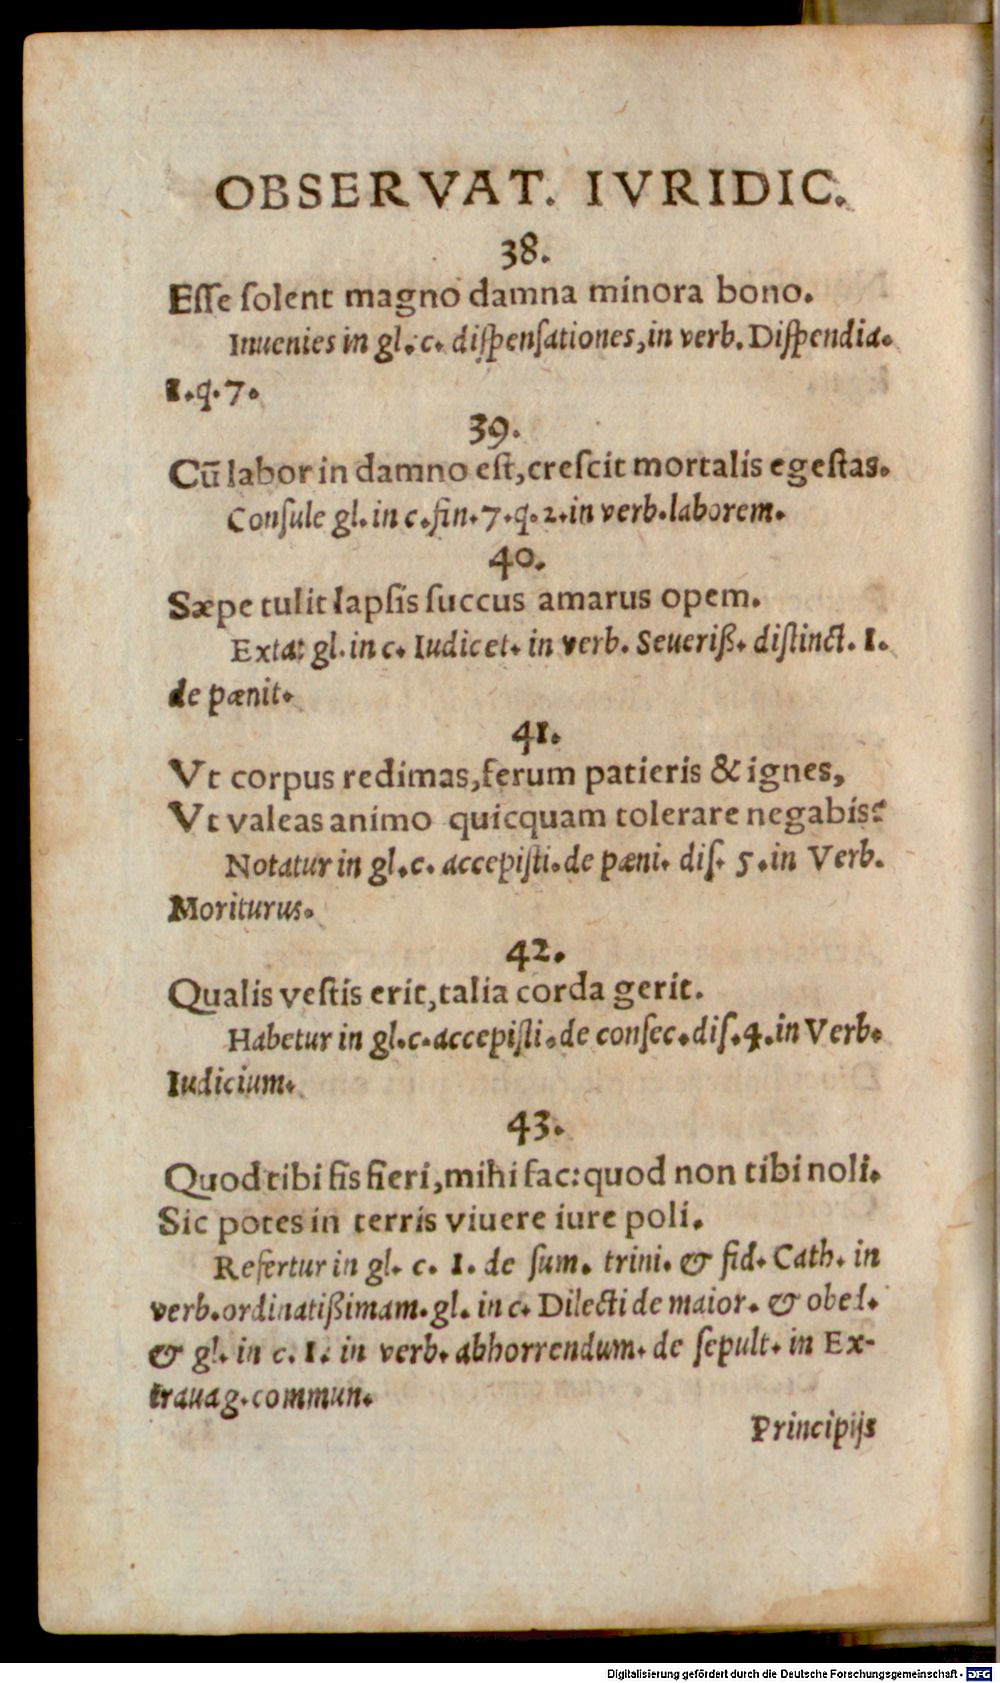 OBSERVAT. IVRIDIC.
38.
Eſſe ſolent magno damna minora bono.
Inuenies in gl. c. diſpenſationes, in verb. Diſpendia.
I. q. 7.
39.
Cū labor in damno eſt, creſcit mortalis egeſtas.
Conſule gl. in c. fin. 7. q. 2. in verb. laborem.
40.
Sæpe tulit lapſis ſuccus amarus opem.
Extat gl. in c. Iudicet. in verb. Seueriß. diſtinct. I.
de pænit.
41.
Vt corpus redimas, ferum patieris & ignes,
Vt valeas animo quicquam tolerare negabis?
Notatur in gl. c. accepiſti. de pæni. diſ. 5. in Verb.
Moriturus.
42.
Qualis veſtis erit, talia corda gerit.
Habetur in gl. c. accepiſti. de conſec. diſ. 4. in Verb.
Iudicium.
43.
Quod tibi ſis fieri, mihi fac: quod non tibi noli.
Sic potes in terris viuere iure poli.
Refertur in gl. c. I. de ſum. trini. & fid. Cath. in
verb. ordinatißimam. gl. in c. Dilecti de maior. & obed.
& gl. in c. I. in verb. abhorrendum. de ſepult. in Ex-
trauag. commun.
Principijs
Digitalisierung gefördert durch die Deutsche Forschungsgemeinschaft - DFG